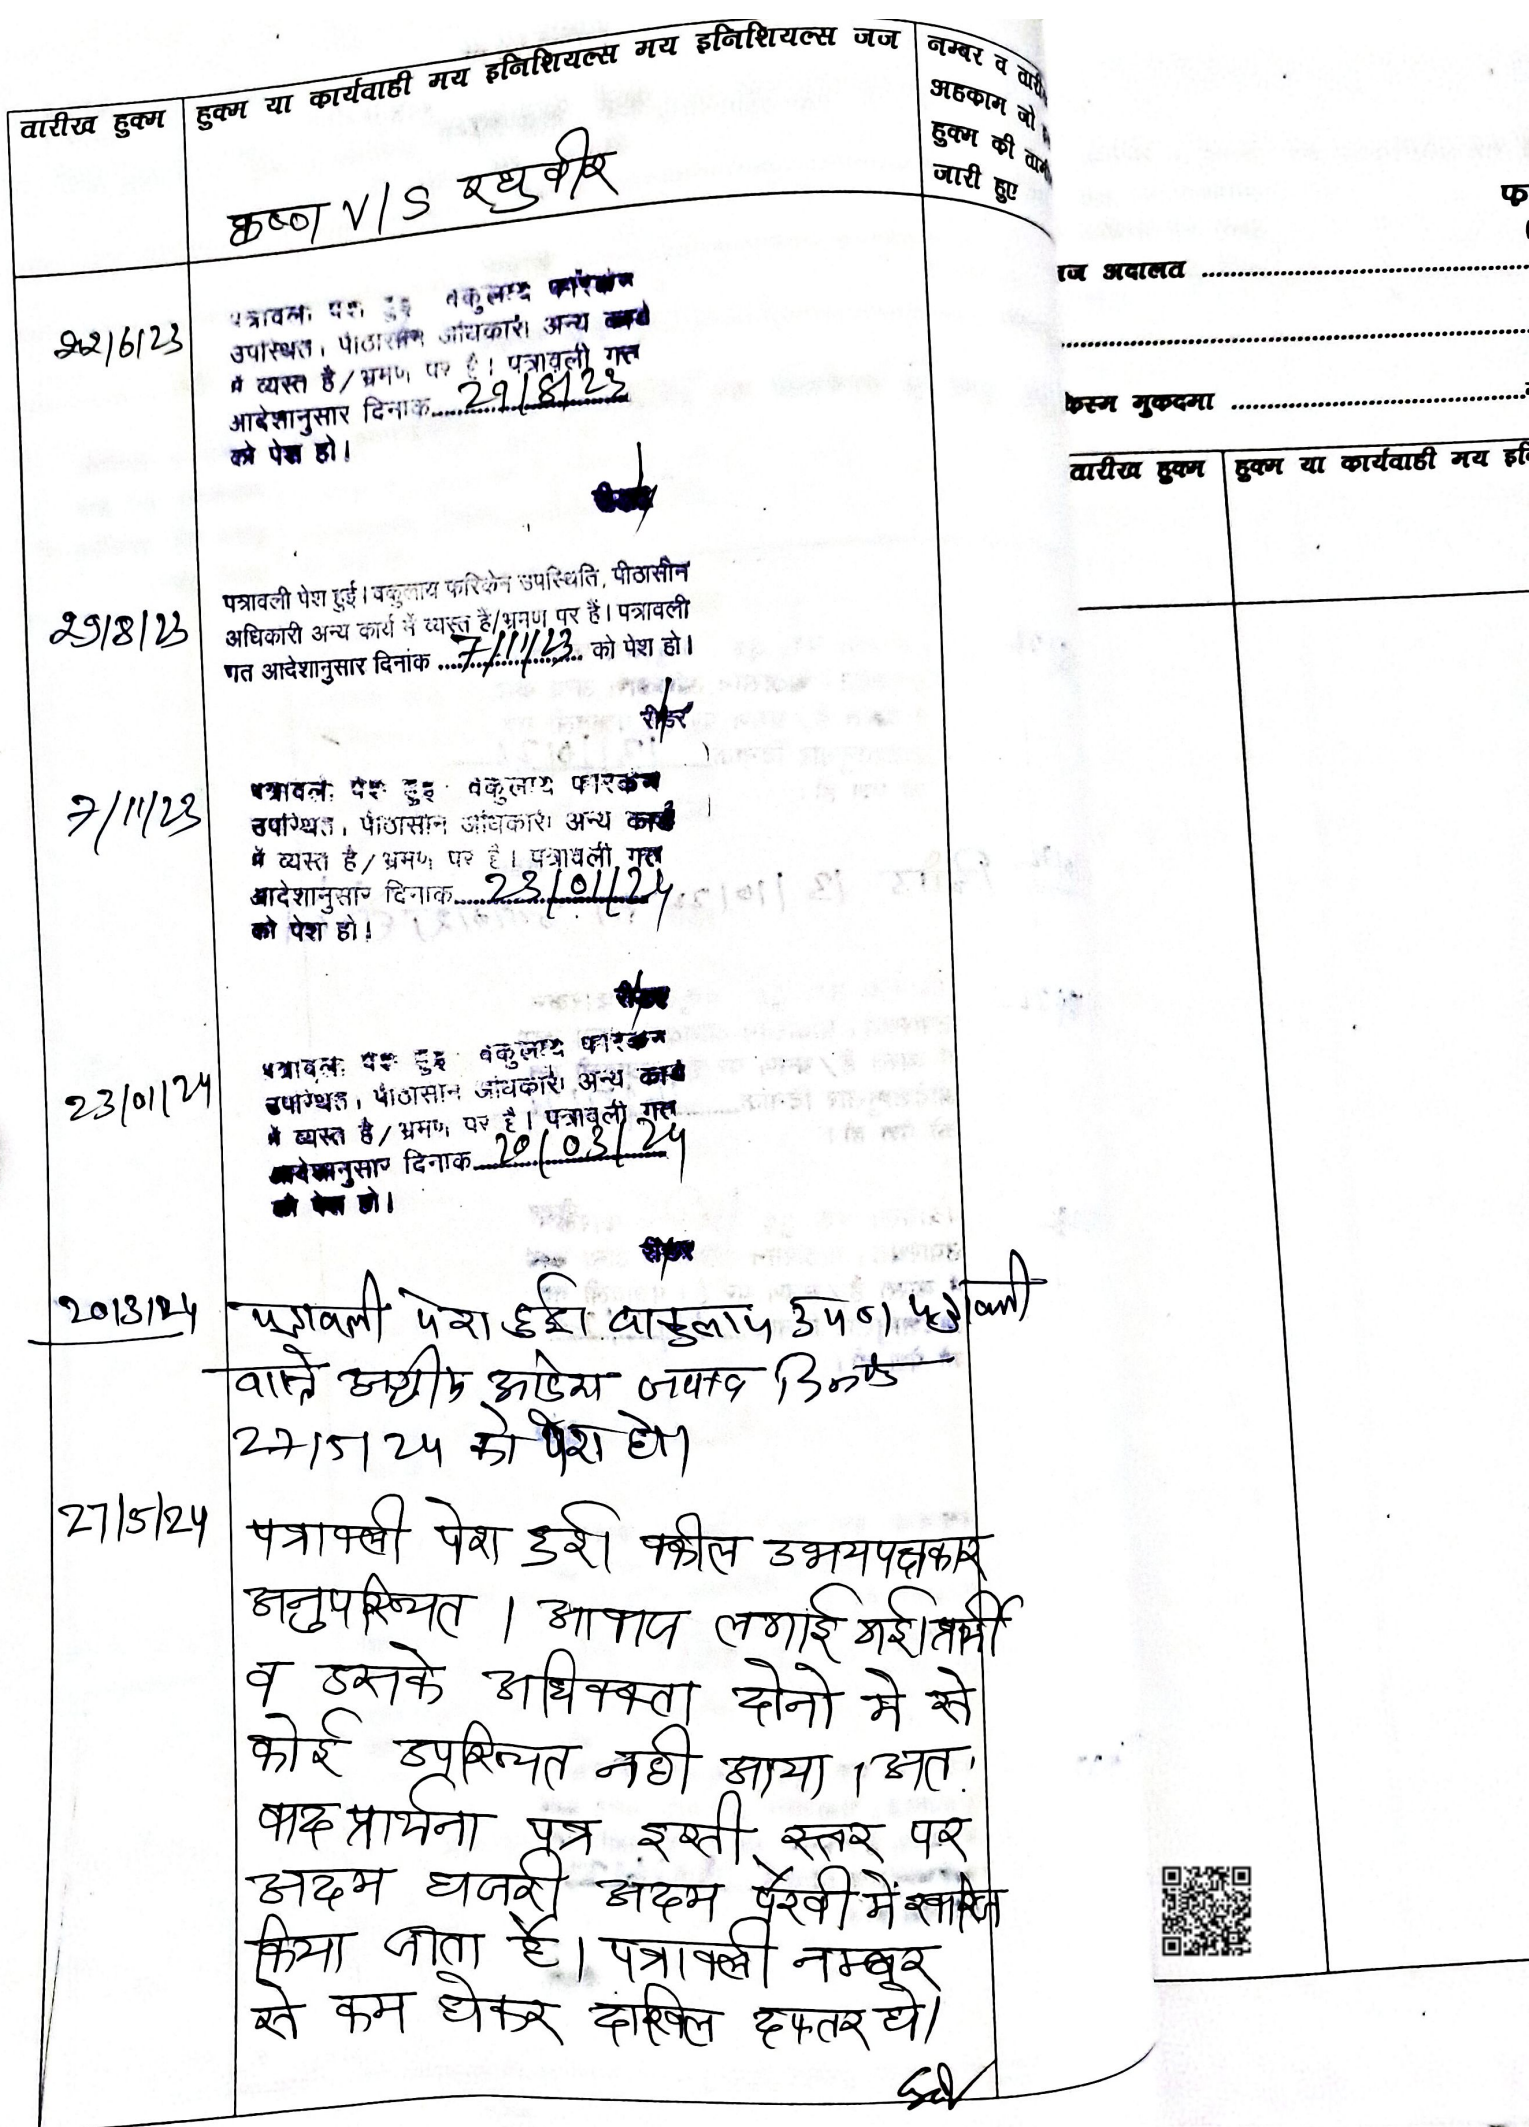 तारीख हुक्म
हुक्म या कार्यवाही मय इनिशियल्स मय इनिशियल्स जज
नम्बर व
अहकाम जो
हुक्म की
जारी हुए
कृष्ण V/S रघुवीर
22/6/23
पत्रावली पेश हुई वकुलाय फरिकेन
उपस्थित, पीठासीन अधिकारी अन्य कार्य
में व्यस्त है/भ्रमण पर है। पत्रावली गत
आदेशानुसार दिनांक 29/8/23
को पेश हो।
रीडर
29/8/23
पत्रावली पेश हुई। वकुलाय फरिकेन उपस्थिति, पीठासीन
अधिकारी अन्य कार्य में व्यस्त हैं/भ्रमण पर हैं। पत्रावली
गत आदेशानुसार दिनांक 7/11/23 को पेश हो।
रीडर
7/11/23
पत्रावली पेश हुई वकुलाय फरिकेन
उपस्थित, पीठासीन अधिकारी अन्य कार्य
में व्यस्त है/भ्रमण पर है। पत्रावली गत
आदेशानुसार दिनांक 23/01/24
को पेश हो।
रीडर
23/01/24
पत्रावली पेश हुई वकुलाय फरिकेन
उपस्थित, पीठासीन अधिकारी अन्य कार्य
में व्यस्त है/भ्रमण पर है। पत्रावली गत
आदेशानुसार दिनांक 20/03/24
को पेश हो।
रीडर
20/3/24
पत्रावली पेश हुई। वकुलाय उप०। पत्रावली
वास्ते
27/5/24 को पेश हो।
27/5/24
पत्रावली पेश हुई। वकील उभयपक्षकार
अनुपस्थित । आवाज लगाई गई। प्रार्थी
व उसके अधिवक्ता दोनो मे से
कोई उपस्थित नही आया। अत:
वाद प्रार्थना पत्र इसी स्तर पर
अदम हाजरी अदम पैरवी में खारिज
किया जाता है। पत्रावली नम्बर
से कम होकर दाखिल दफ्तर हो।
फ
अदालत
मुकदमा
तारीख हुक्म
हुक्म या कार्यवाही मय